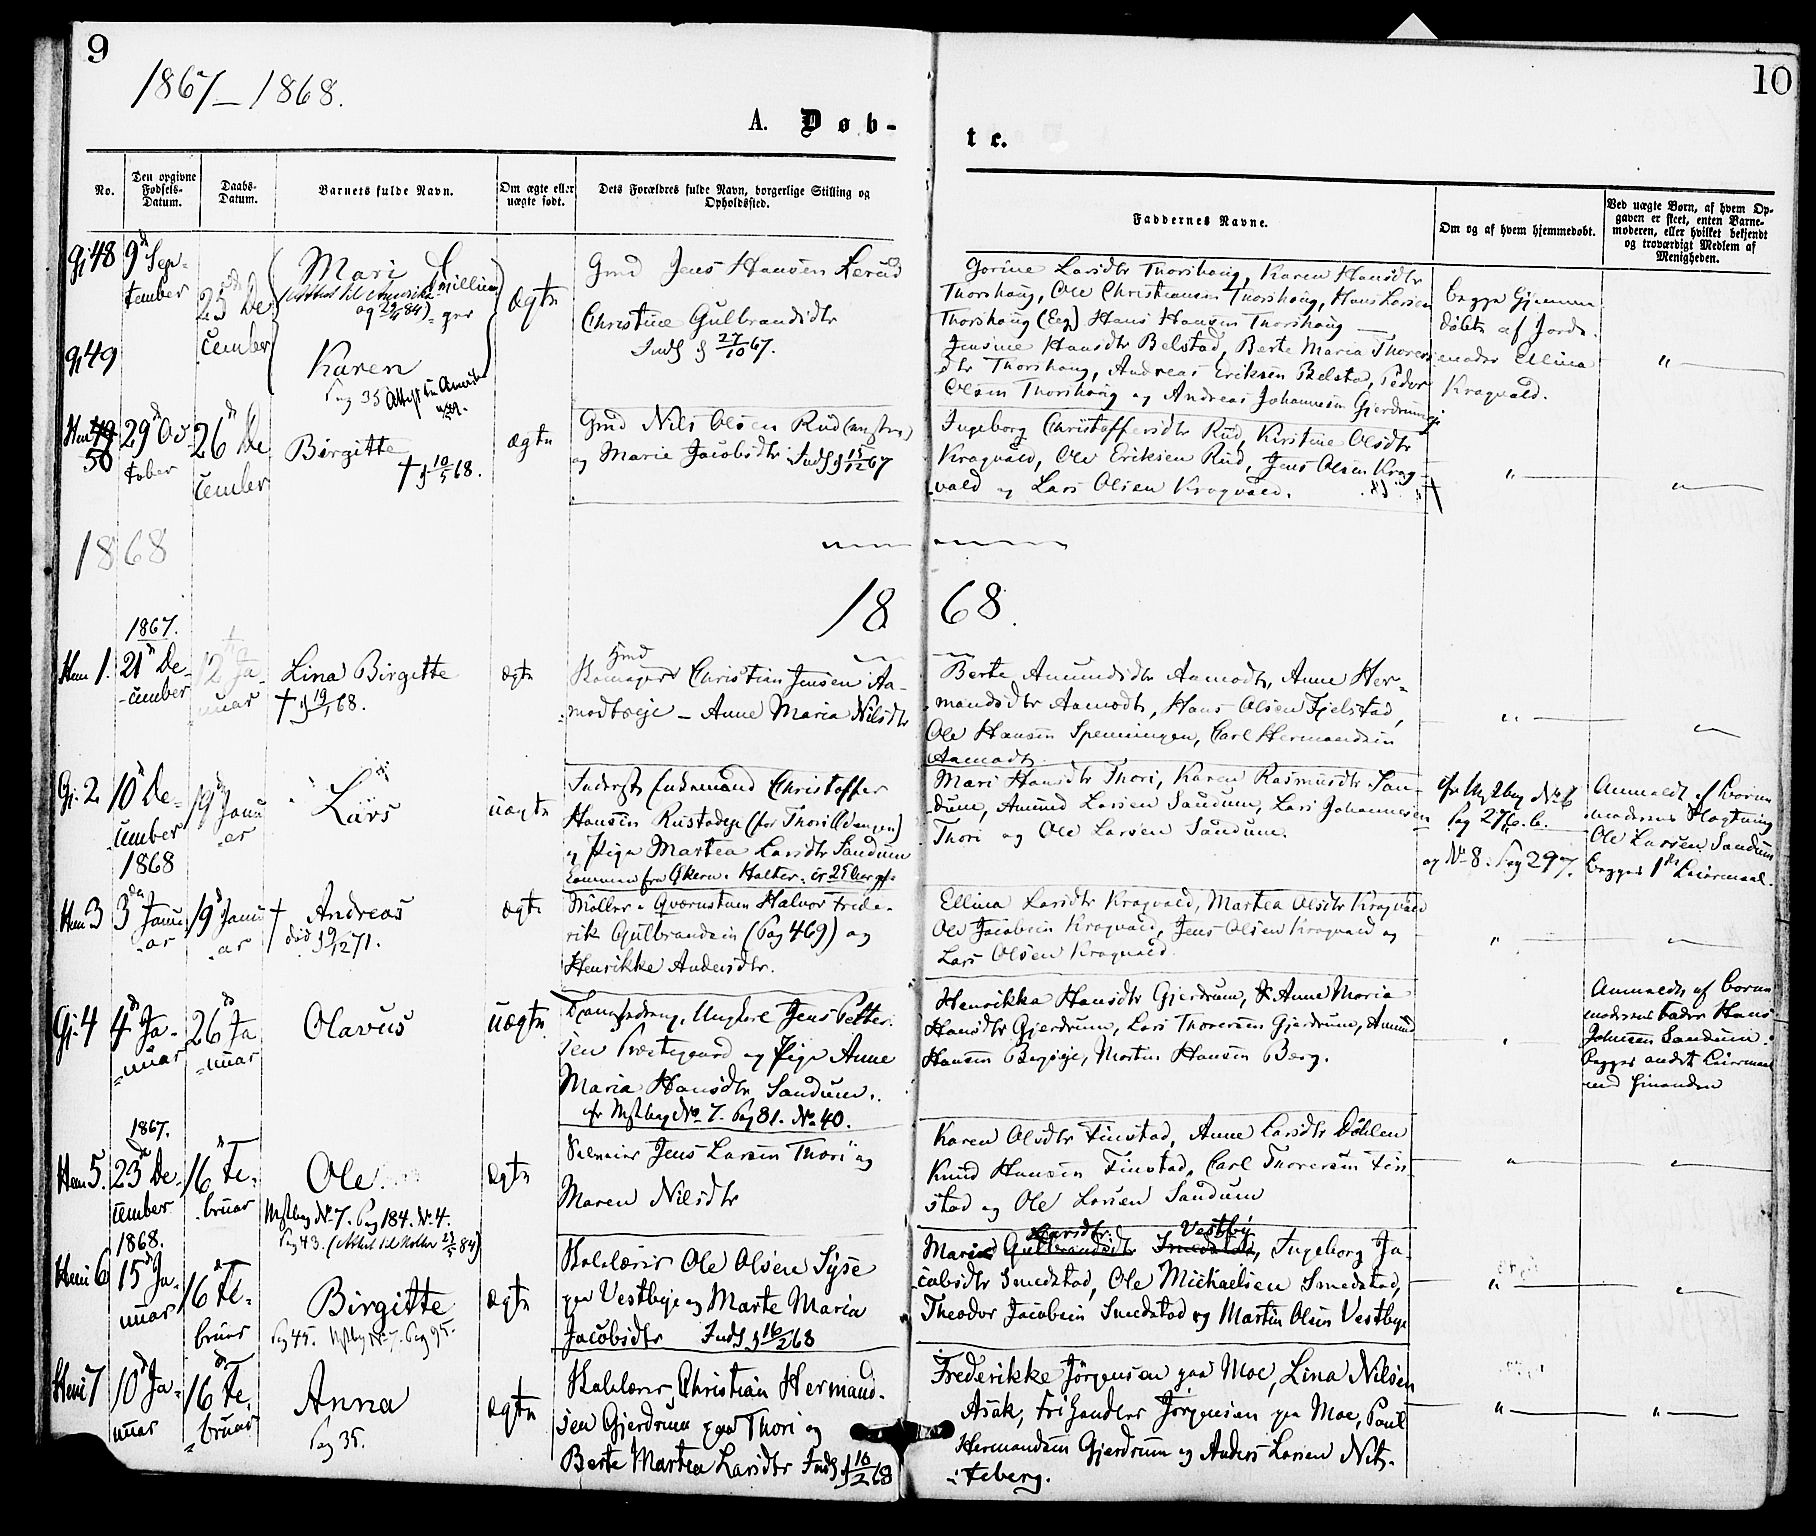 9
10
1867–1868.
A. Døb-
te.
No.
Den opgivne
Fødsels-
Datum.
Daabs-
Datum.
Barnets fulde Navn.
Om ægte eller
uægte født.
Dets Forældres fulde Navn, borgerlige Stilling og
Opholdssted.
Faddernes Navne.
Om og af hvem hjemmedøbt.
Ved uægte Børn, af hvem Op-
gaven er skeet, enten Barne-
moderen, eller hvilket bekjendt
og troværdigt Medlem af
Menigheden.
Gj 48
9d Sep-
tember
25de De
cember
Mari
Tvillin-
ger
(Attest til Amerika
Ægte
Gmd Jens Hansen
Christine Gulbrandsdtr
Inds. d 27/10 67.
Gorine Larsdtr Thorshoug, Karen Hansdtr
Thorshoug, Ole Christiansen Thorshoug, Hans Larsen
Thorshoug (Eeg) Hans Hansen Thorshoug
Jensine Hansdtr Belstad, Berte Maria Thorers
dtr Thorshoug, Andreas Eriksen Belstad, Peder
Olsen Thorshoug og Andreas Johannesen Gjerdrumeje
begge Hjemme
døbte af Jorde-
moder Ellina
Kragvald.
Gj 49
Karen
Pag 35 Attest til Amerika
Hem 49
50
29d Oc
tober
26d De
cember
Birgitte
† d 10/5 68.
ægte
Gmd Nils Olsen Rud
og Marie Jacobsdtr Inds d 15/12 67
Ingeborg Christoffersdtr Rud, Kirstine Olsdtr
Kragvald, Ole Eriksen Rud, Jens Olsen Krag-
vald og Lars Olsen Kragvald.
1868
18 68.
1867.
Hem 1.
21d De-
cember
12 Ja-
nuar
Lina Birgitte
† d 19/1 68.
ægte
Gmd
Christian Jensen Aa-
modtseje – Anne Maria Nilsdtr
Berte Amundsdtr Aamodt, Anne Her-
mandsdtr Aamodt, Hans Olsen Fjelstad,
Ole Hansen Spenningen, Carl Hermandsen
Aamodt.
Gj. 2
10d De-
cember
19d Janu
ar
Lars
uægte
Inderst Enkemand Christoffer
Hansen Rustadeje
og Pige Martea Larsdtr Sandum
Mari Hansdtr Thori, Karen Rasmusdtr San-
dum, Amund Larsen Sandum, Lars Johannesen
Thori og Ole Larsen Sandum.
Pag 276. b.
og No 8. Pag 297.
Anmeldt af Barne
moderens Slegtning
Ole Larsen Sandum
begges 1ste Leiermaal.
1868
Hem 3
3die Janu
ar
19d Janu
ar
† Andreas
død d 9/12 71.
ægte
Møller i Qværnstuen Halvor Frede-
rik Gulbrandsen (Pag 469) og
Henrikke Andersdtr.
Ellina Larsdtr Kragvald, Martea Olsdtr Kragvald
Ole Jacobsen Kragvald, Jens Olsen Kragvald og
Lars Olsen Kragvald.
Gj. 4
4d Ja-
nuar
26d Ja
nuar
Olavus
uægte
Ungkarl Jens Petter-
sen Præstegaard og Pige Anne
Maria Hansdtr Sandum.
No 7. Pag 81. No 40.
Henrikka Hansdtr Gjerdrum, Anne Maria
Hansdtr Gjerdrum, Lars Thoresen Gjerdrum, Amund
Hansen Bergseje, Morten Hansen Berg.
Anmeldt af Barne
moderens Fader Hans
Johnsen Sandum.
begges andet Leiermaal
med hinanden
1867.
Hem 5.
23d De-
cember
16d Fe-
bruar
Ole
No 7. Pag 184. No 4.
Pag 43.
ægte
Selveier Jens Larsen Thori og
Maren Nilsdtr
Karen Olsdtr Finstad, Anne Larsdtr Döhlen
Knud Hansen Finstad, Carl Thoresen Fin
stad og Ole Larsen Sandum
1868.
Hem 6
15d Ja-
nuar
16d Fe-
bruar
Birgitte
Pag 45. No 7. Pag 95.
ægte
Skolelærer Ole Olsen Syse
paa Vestbye og Marte Maria
Jacobsdtr Inds d 16/2 68
Larsdtr. Vestby
Maria Gulbrandsdtr Smedstad, Ingeborg Ja-
cobsdtr Smedstad, Ole Michaelsen Smedstad,
Theodor Jacobsen Smedstad og Martin Olsen Vestbye
Hem 7
10d Ja-
nuar
16d Fe-
bruar
Anna
Pag 35.
ægte
Skolelærer Christian Hermand-
sen Gjerdrum paa Thori og
Berte Martea Larsdtr Inds d 16/2 68
Frederikke Jørgensen paa Moe, Lina Nilsen
Asak, Jørgensen paa Moe, Paul
Hermandsen Gjerdrum og Anders Larsen Nit-
teberg.